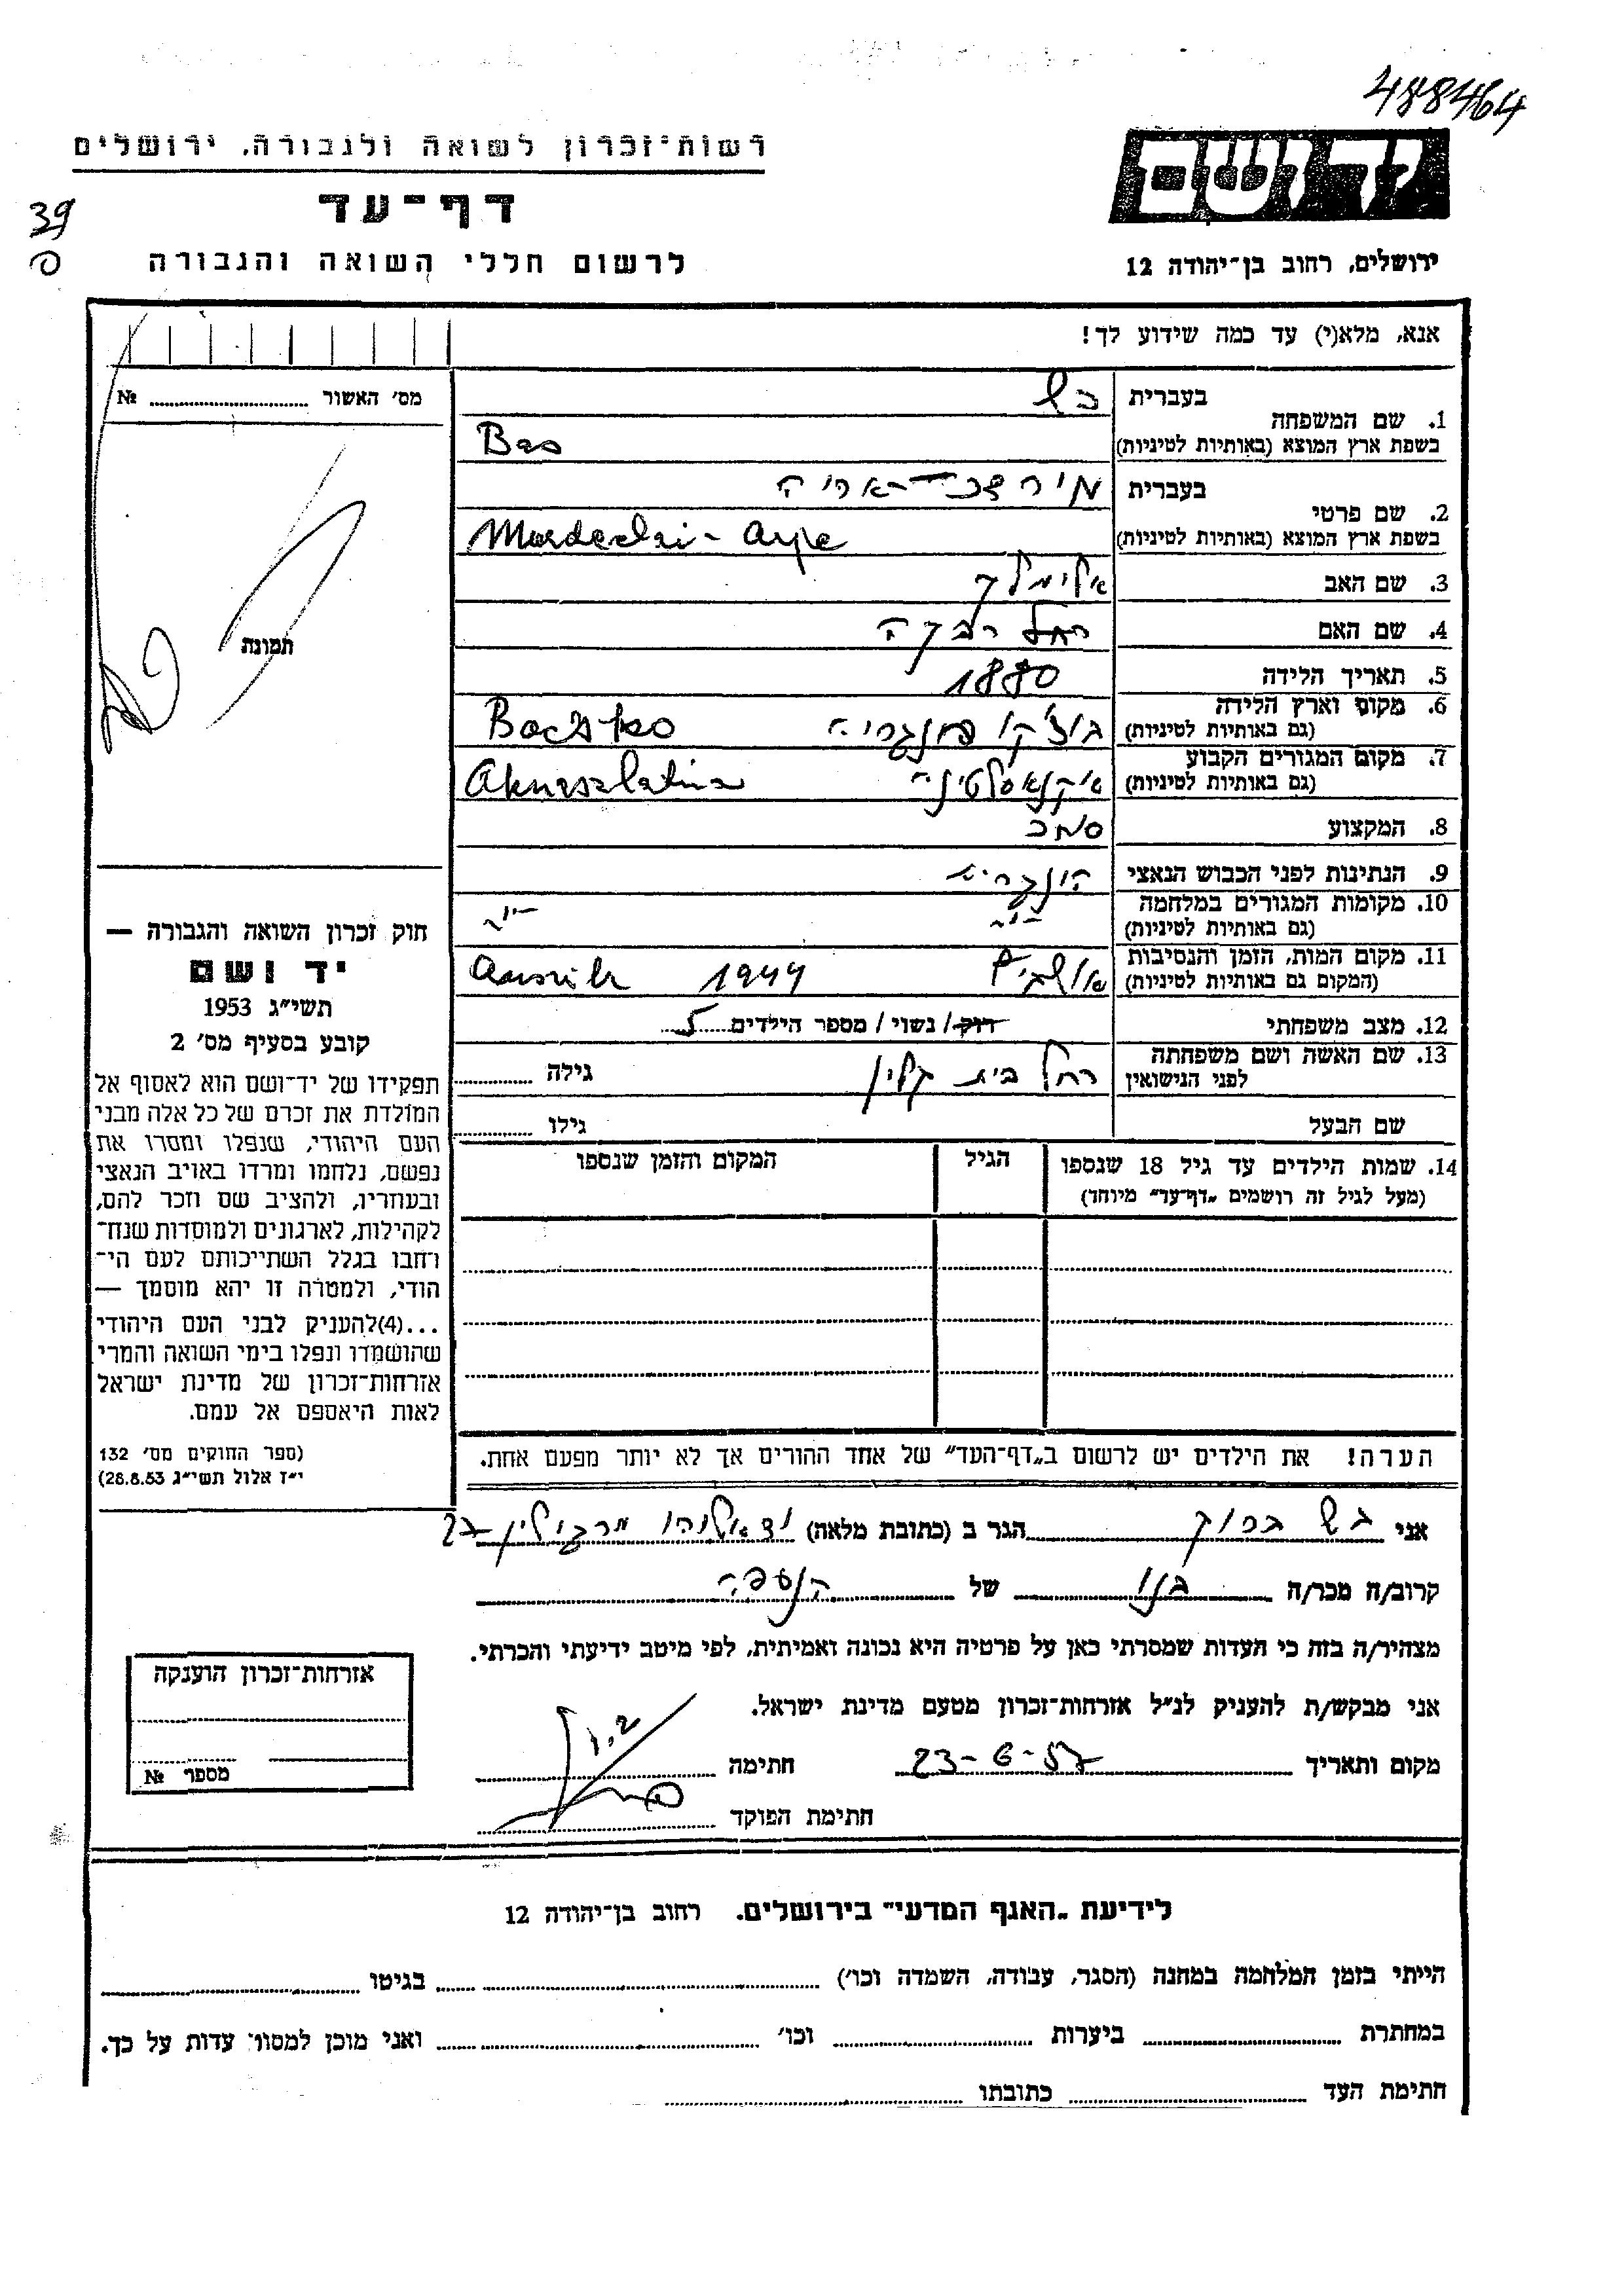 488464
רשות־זכרון לשואה ולגבורה, ירושלים
דף־עד
לרשום חללי השואה והגבורה
39
ידושם
ירושלים, רחוב בן־יהודה 12
אנא, מלא(י) עד כמה שידוע לך!
מס׳ האשור № 
תמונה
1. שם המשפחה
בעברית בש
בשפת ארץ המוצא (באותיות לטיניות) Bas
2. שם פרטי
בעברית
בשפת ארץ המוצא (באותיות לטיניות) Mordechai - Arye
3. שם האב אלימלך
4. שם האם רחל רבקה
5. תאריך הלידה 1880
6. מקום וארץ הלידה
(גם באותיות לטיניות)
7. מקום המגורים הקבוע
(גם באותיות לטיניות) Aknaszlatina
8. המקצוע סוחר
9. הנתינות לפני הכבוש הנאצי הונגרית
10. מקומות המגורים במלחמה
(גם באותיות לטיניות)
11. מקום המות, הזמן והנסיבות
(המקום גם באותיות לטיניות) 1944
12. מצב משפחתי רוק / נשוי / מספר הילדים 5
13. שם האשה ושם משפחתה
לפני הנישואין רחל בית קליין גילה
שם הבעל גילו
14. שמות הילדים עד גיל 18 שנספו
(מעל לגיל זה רושמים „דף־עד” מיוחד)
הגיל
המקום והזמן שנספו
הערה! את הילדים יש לרשום ב„דף־העד” של אחד ההורים אך לא יותר מפעם אחת.
חוק זכרון השואה והגבורה —
יד ושם
תשי״ג 1953
קובע בסעיף מס׳ 2
תפקידו של יד־ושם הוא לאסוף אל
המולדת את זכרם של כל אלה מבני
העם היהודי, שנפלו ומסרו את
נפשם, נלחמו ומרדו באויב הנאצי
ובעוזריו, ולהציב שם וזכר להם,
לקהילות, לארגונים ולמוסדות שנח־
רחבו בגלל השתייכותם לעם הי־
הודי, ולמטרה זו יהא מוסמך —
...(4)להעניק לבני העם היהודי
שהושמדו ונפלו בימי השואה והמרי
אזרחות־זכרון של מדינת ישראל
לאות היאספם אל עמם.
(ספר החוקים מס׳ 132
י״ז אלול תשי״ג 28.8.53)
אני בש ברוך הגר ב (כתובת מלאה)
קרוב/ה מכר/ה בנו של הנספה
מצהיר/ה בזה כי העדות שמסרתי כאן על פרטיה היא נכונה ואמיתית, לפי מיטב ידיעתי והכרתי.
אני מבקש/ת להעניק לנ״ל אזרחות־זכרון מטעם מדינת ישראל.
מקום ותאריך 23-6-57 חתימה
חתימת הפוקד
אזרחות־זכרון הוענקה
מספר №
לידיעת „האגף המדעי” בירושלים, רחוב בן־יהודה 12
הייתי בזמן המלחמה במחנה (הסגר, עבודה, השמדה וכו׳) בגיטו
במחתרת ביערות וכו׳ ואני מוכן למסור עדות על כך.
חתימת העד כתובתו